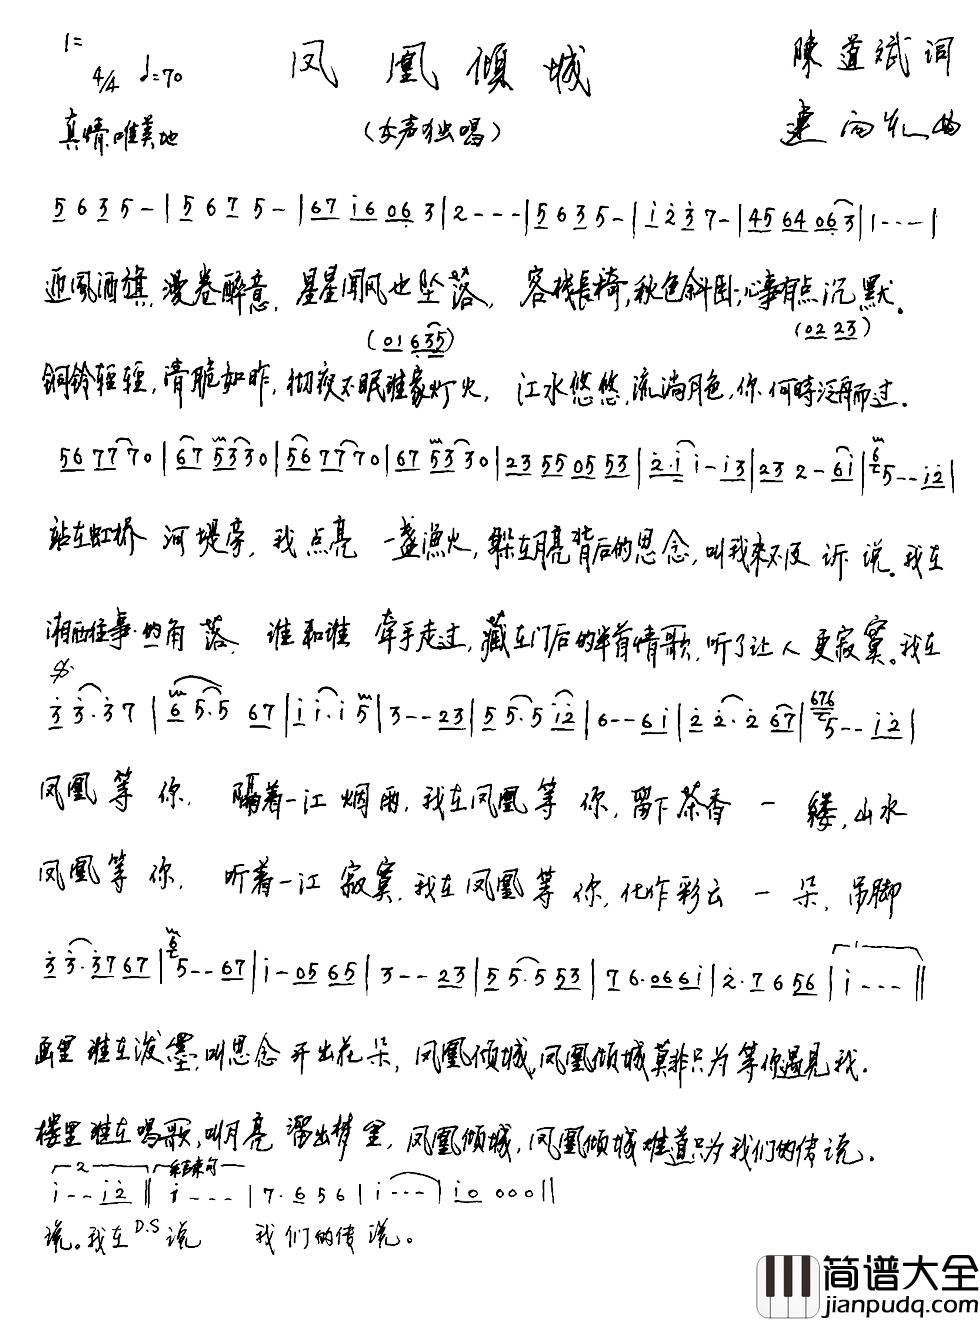 1=
4/4 ♩=70
凤凰倾城
陳道斌 词
真情、唯美地
(女声独唱)
曲
5 6 3 5 - | 5 6 7 5 - | 67 i6 06 3 | 2 - - - | 5 6 3 5 - | i 2 3 7 - | 45 64 063 | 1 - - - |
迎风酒旗,漫卷醉意,星星闻风也坠落,客栈長椅,秋色斜卧,心事有点沉默。
(01 635) (02 23)
铜铃轻轻,清脆如昨,彻夜不眠谁家灯火,江水悠悠,流淌月色,你何時泛舟而过.
56 7770 | 67 5330 | 56 7770 | 67 5330 | 23 55 05 53 | 2·i i - i3 | 23 2 - 6i | 5 - - i2 |
站在虹桥 河堤旁,我点亮 一盏渔火,躲在月亮背后的思念,叫我来不及 诉说。我在
湘西往事的角落,谁和谁 牵手走过,藏在门后的半首情歌,听了让人更寂寞。我在
3 3·3 7 | 6 5·5 67 | i i·i 5 | 3 - - 23 | 5 5·5 i2 | 6 - - 6i | 2 2·2 67 | 676 5 - - i2 |
凤凰等你,隔着一江烟雨,我在凤凰等你,留下茶香一缕,山水
凤凰等你,听着一江寂寞,我在凤凰等你,化作彩云一朵,吊脚
3 3·3767 | 6 5 - - 67 | i - 05 65 | 3 - - 23 | 5 5·5 53 | 7 6·066i | 2·7 6 56 | 1 i - - - ||
画里谁在泼墨,叫思念开出花朵,凤凰倾城,凤凰倾城莫非只为等你遇见我.
楼里谁在唱歌,叫月亮溜出梦里,凤凰倾城,凤凰倾城难道只为我们的传说.
2 结束句
i - - i2 || i - - - | 7·6 5 6 | i - - - | i0 000 ||
说。我在 D.S 说 我们的传说。
简谱大全
jianpudq.com